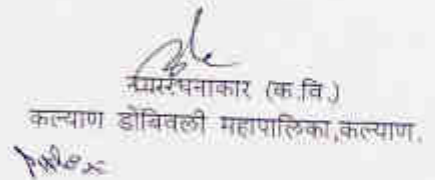 नगररचनाकार (क.वि.)
कल्याण डोंबिवली महापालिका,कल्याण.